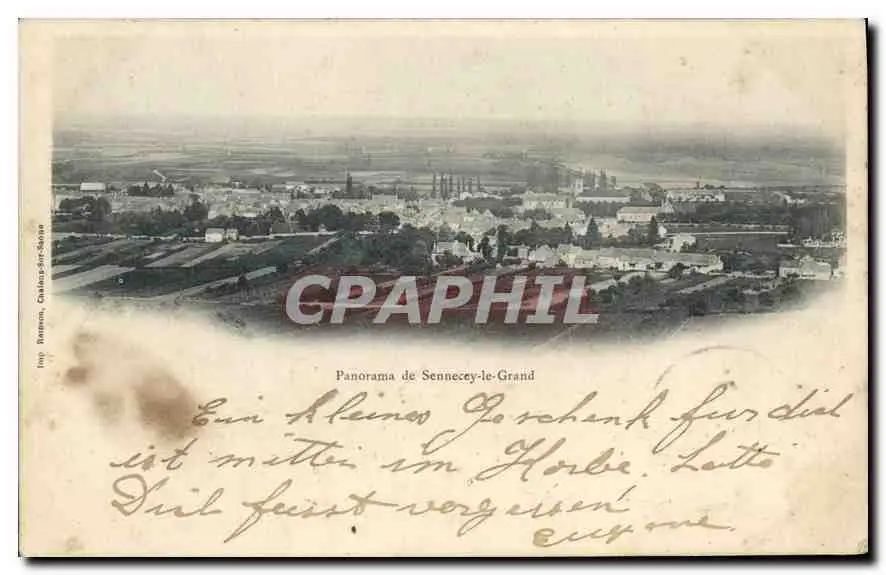 CPAPHIL
Imp. Ramson, Chalons-Sur-Saône
Panorama de Sennecey-le-Grand
Ein kleines Geschenk für dich
ist mitten im Korbe. Lotte
Du sollst vergessen
Eugene